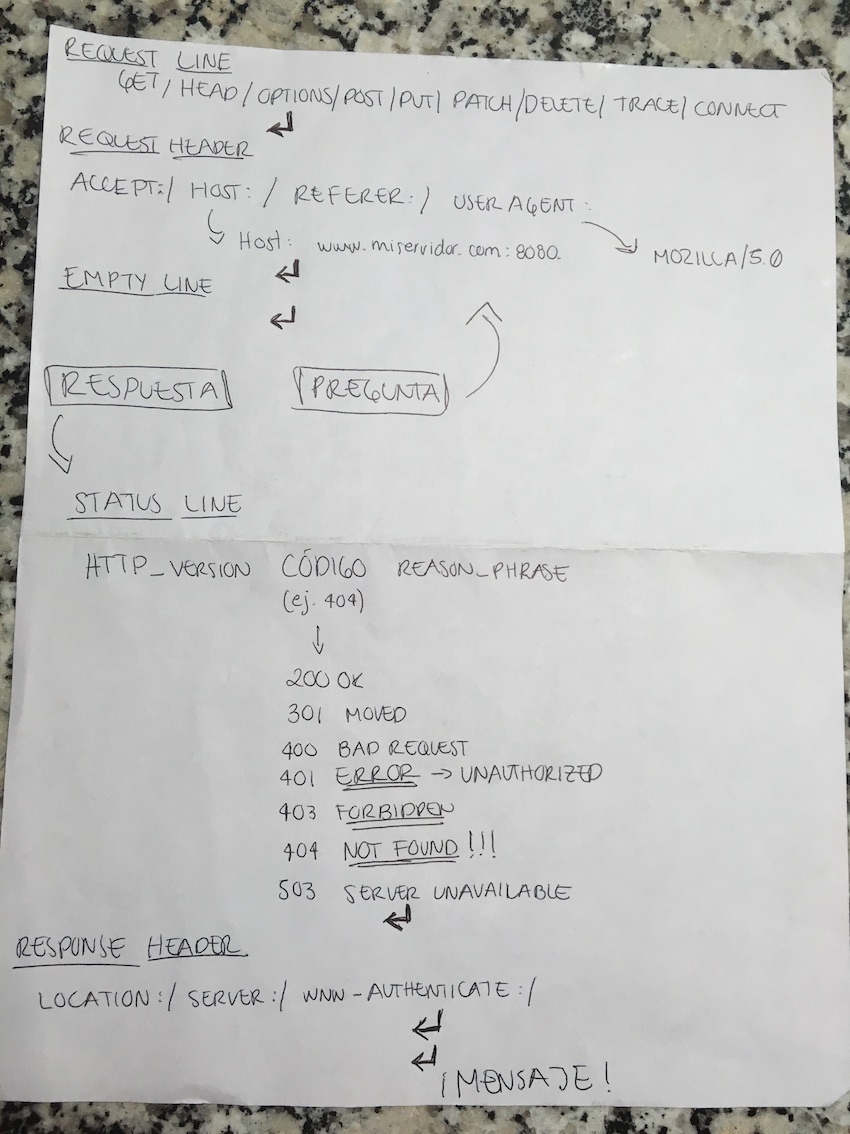 REQUEST LINE
GET / HEAD / OPTIONS / POST / PUT / PATCH / DELETE / TRACE / CONNECT
↵
REQUEST HEADER
ACCEPT: / HOST: / REFERER: / USER AGENT:
Host: www.miservidor.com:8080
MOZILLA/5.0
↵
EMPTY LINE
↵
RESPUESTA PREGUNTA
STATUS LINE
HTTP_VERSION CÓDIGO REASON_PHRASE
(ej. 404)
↓
200 OK
301 MOVED
400 BAD REQUEST
401 ERROR → UNAUTHORIZED
403 FORBIDDEN
404 NOT FOUND!!!
503 SERVER UNAVAILABLE
↵
RESPONSE HEADER
LOCATION: / SERVER: / WWW-AUTHENTICATE: /
↵
↵
¡MENSAJE!